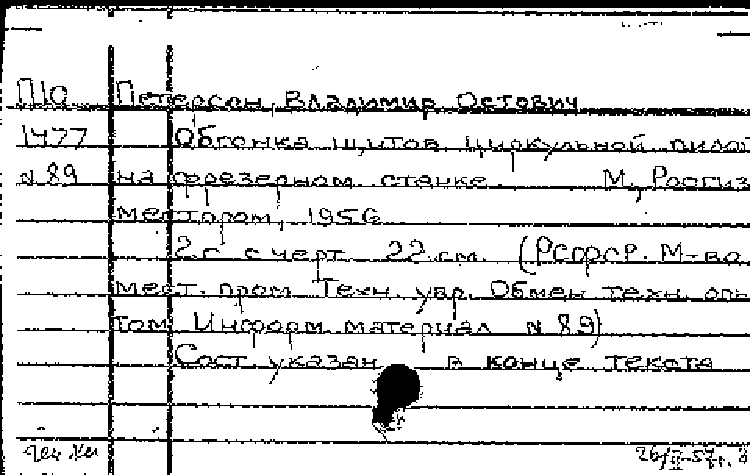 П10 Петерсон, Владимир Остович
1477 Обгонка щитов циркульной пилой
№89 на фрезерном станке. М., Росгиз
местпром, 1956
2 с. с черт. 22 см. (РСФСР. М-во
мест. пром. Техн. упр. Обмен техн. опы
том. Информ. материал №89)
Сост. указан в конце текста
26/II-57г.